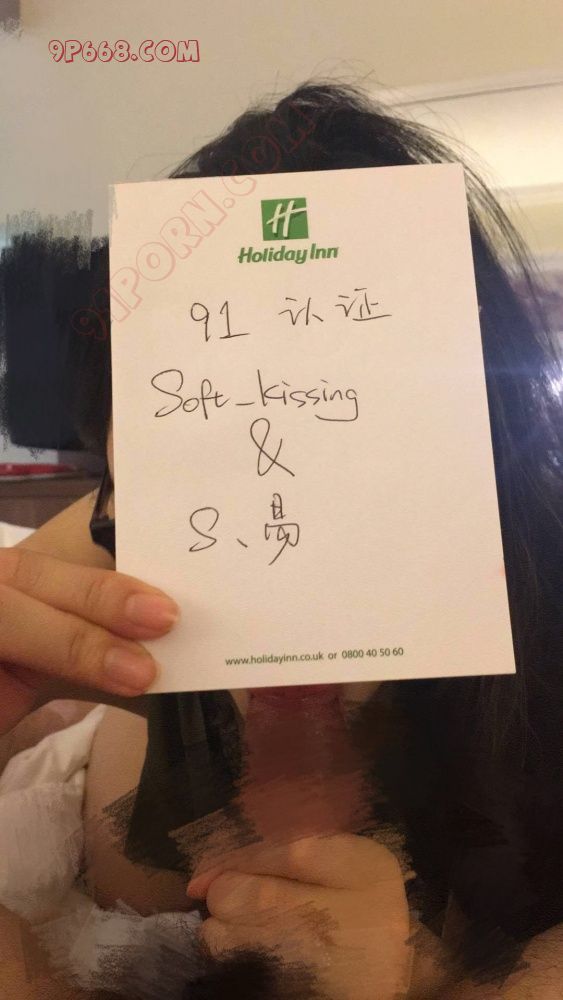 9P668.COM
91PORN.COM
H
Holiday Inn
91 认证
Soft_kissing
&
S、易
www.holidayinn.co.uk or 0800 40 50 60